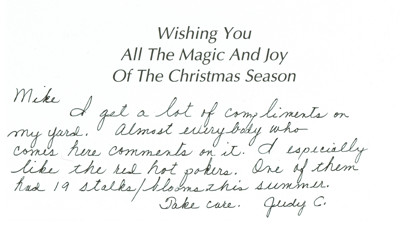 Wishing You
All The Magic And Joy
Of The Christmas Season
Mike
I get a lot of compliments on
my yard. Almost everybody who
comes here comments on it. I especially
like the red hot pokers. One of them
had 19 stalks/blooms this summer.
Take care. Judy C.